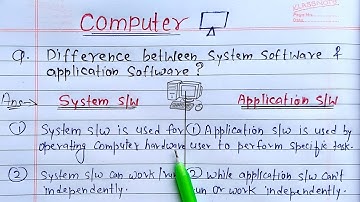 Computer
Q. Difference between System Software &
application Software?
Ans→ System S/W
① System s/w is used for
operating Computer hardware
② System s/w can work/run
independently.
Application S/W
① Application s/w is used by
user to perform specific task.
② While application s/w can't
run or work independently.